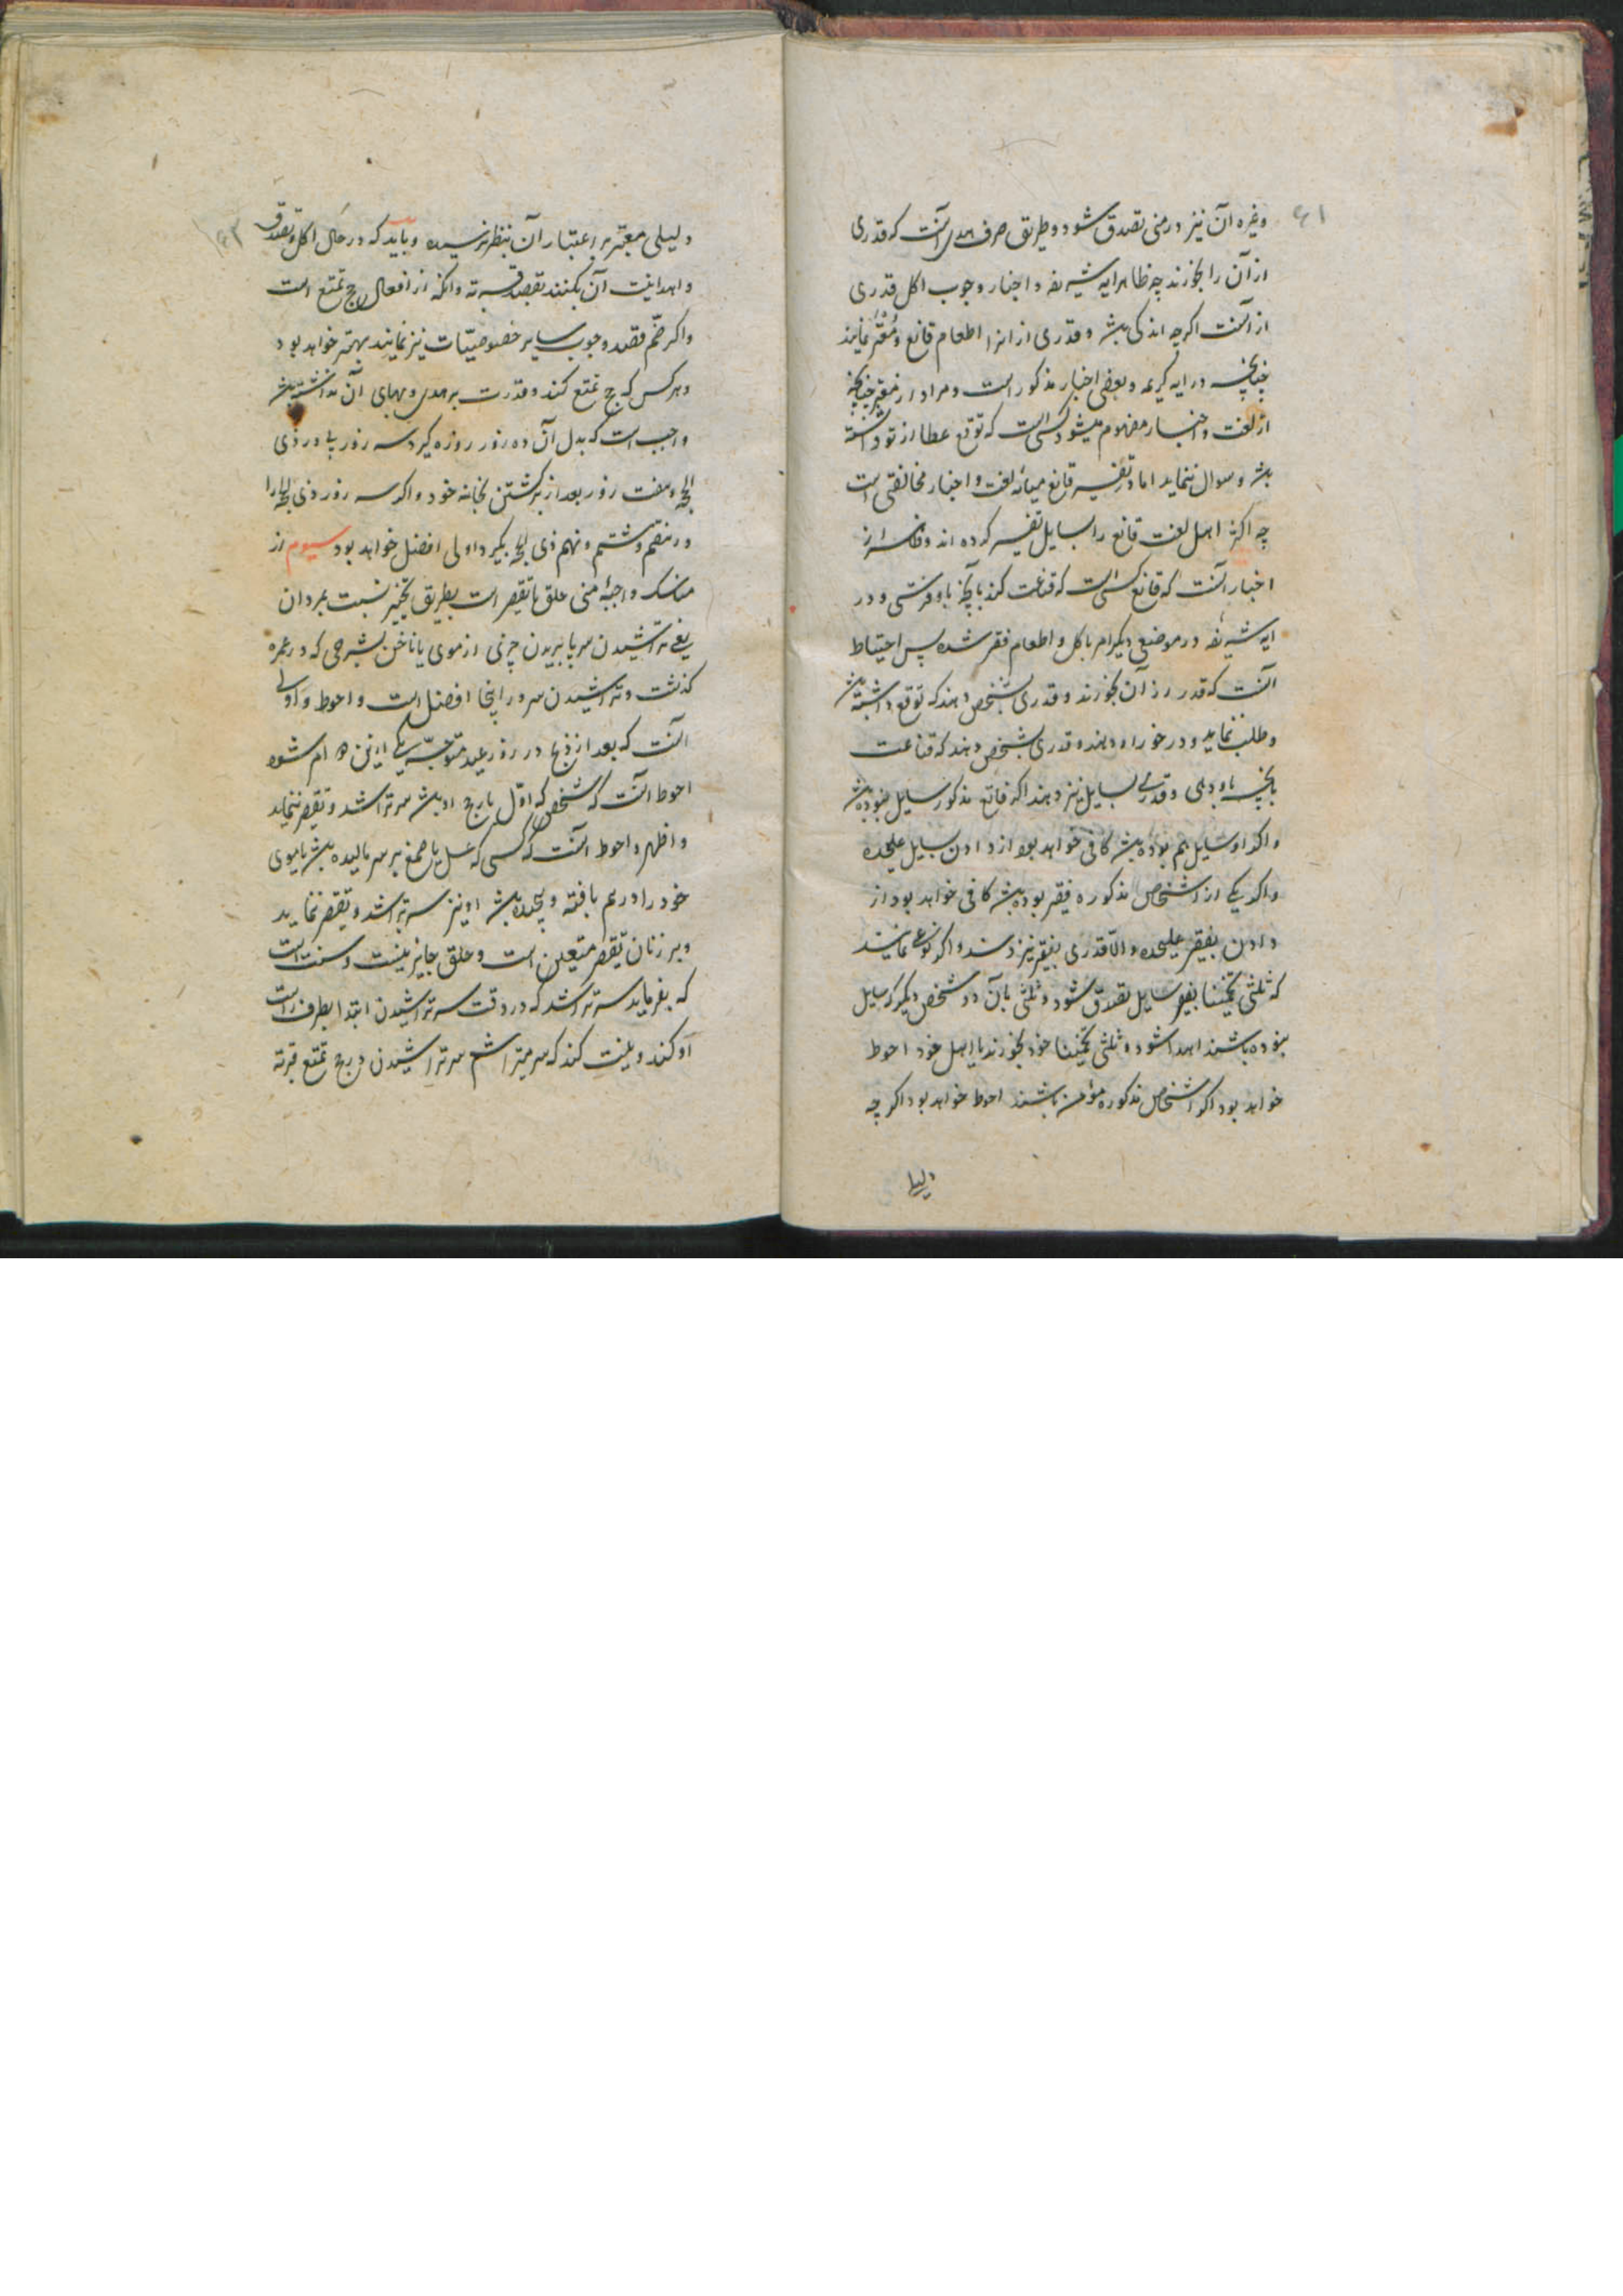 ۶۱
وغیره آن نیز در منی تصدق شود و طریق صرف هدی آنست که قدری
از آن را بخورند چه ظاهر ایه شریفه و اخبار وجوب اکل قدری
از آنست اگرچه اندکی باشد و قدری از انرا اطعام قانع و معتر نمایند
چنانچه در ایه کریمه و بعضی اخبار مذکور است و مراد از معتر چنانچه
از لغت و اخبار مفهوم میشود کسی است که توقع عطا از تو داشته
باشد و سوال ننماید اما در تفسیر قانع میانه لغت و اخبار مخالفتی است
چه اکثر اهل لغت قانع را بسایل تفسیر کرده اند و ظاهر از
اخبار آنست که قانع کسی است که قناعت کند بآنچه باو فرستی و در
ایه شریفه در موضعی دیگر امر باکل و اطعام فقیر شده پس احتیاط
آنست که قدر از آن بخورند و قدری بشخصی دهند که توقع داشته باشد
و طلب ننماید و در خور او دهند و قدری بشخصی دهند که قناعت
بآنچه باو دهی و قدری بسایل نیز دهند اگر قانع مذکور سایل نبوده باشد
و اگر او سایل هم بوده باشد کافی خواهد بود از دادن بسایل علیحده
و اگر یکی از اشخاص مذکوره فقیر بوده باشد کافی خواهد بود از
دادن بفقیر علیحده و الا قدری بفقیر نیز دهند و اگر نوعی نمایند
که ثلثی تخمینا بفقیر سایل تصدق شود و ثلثی بآن دو شخص دیگر که سایل
نبوده باشند اهدا شود و ثلثی تخمینا خود بخورند با اهل خود احوط
خواهد بود اگر اشخاص مذکوره مؤمن باشند احوط خواهد بود اگر چه
دلیلی
۶۲
دلیلی معتبر بر اعتبار آن بنظر نرسیده و باید که در حال اکل و تصدق
و اهدا نیت آن بکنند بقصد قربت و آنکه از افعال حج تمتع است
و اگر ضم قصد وجوب سایر خصوصیات نیز نمایند بهتر خواهد بود
و هر کس که حج تمتع کند و قدرت بر هدی و بهای آن نداشته باشد
واجب است که بدل آن ده روز روزه گیرد سه روز پا در ذی
الحجه و هفت روز بعد از برگشتن بخانه خود و اگر سه روز ذی الحجه را
در هفتم و هشتم و نهم ذی الحجه بگیرد اولی افضل خواهد بود سیوم از
مناسک واجبه منی حلق یا تقصیر است بطریق تخییر نسبت بمردان
یعنی تراشیدن سر یا بریدن چیزی از موی یا ناخن بشرحی که در عمره
گذشت و تراشیدن سر در اینجا افضل است و احوط و اولی
آنست که بعد از ذبح در روز عید متوجه یکی از این دو امر شود
احوط آنست که شخصی که اول بار حج او باشد سر تراشد و تقصیر ننماید
و اظهر و احوط آنست که کسی که عسل یا صمغ بر سر مالیده باشد یا موی
خود را درهم بافته و پیچیده باشد او نیز سر تراشد و تقصیر ننماید
و بر زنان تقصیر متعین است و حلق جایز نیست و سنت است
که بفرماید سر تراشد که در وقت سر تراشیدن ابتدا بطرف راست
او کند و نیت کند که سر میتراشم سر تراشیدن در حج تمتع قربة